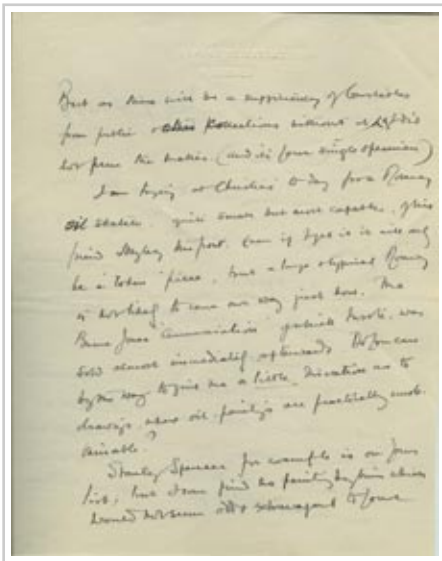 But as there will be a sufficiency of Constables
from public & other collections without it, I did
not press the matter (and it's four single specimens)
I am trying at Christies to day for a Romney
oil sketch, quite small but most capable, of his
friend Even if I get it it will only
be a "token" piece, but a large & typical Romney
is not likely to come our way just now. The
Burne Jones "Annunciation" was
sold almost immediately afterwards. Do you care
by the way to give me a little direction as to
drawings when oil paintings are practically unob-
tainable?
Stanley Spencer for example is on your
list, but I can find no painting by him which
would not seem odd & extravagant to your